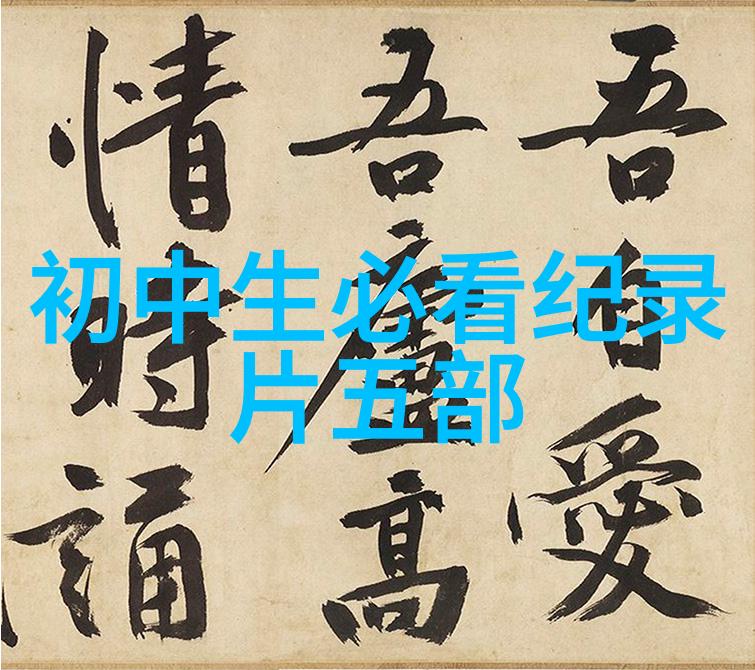 初中生必看纪录
片五部
吾自愛
吾廬高
情時誦